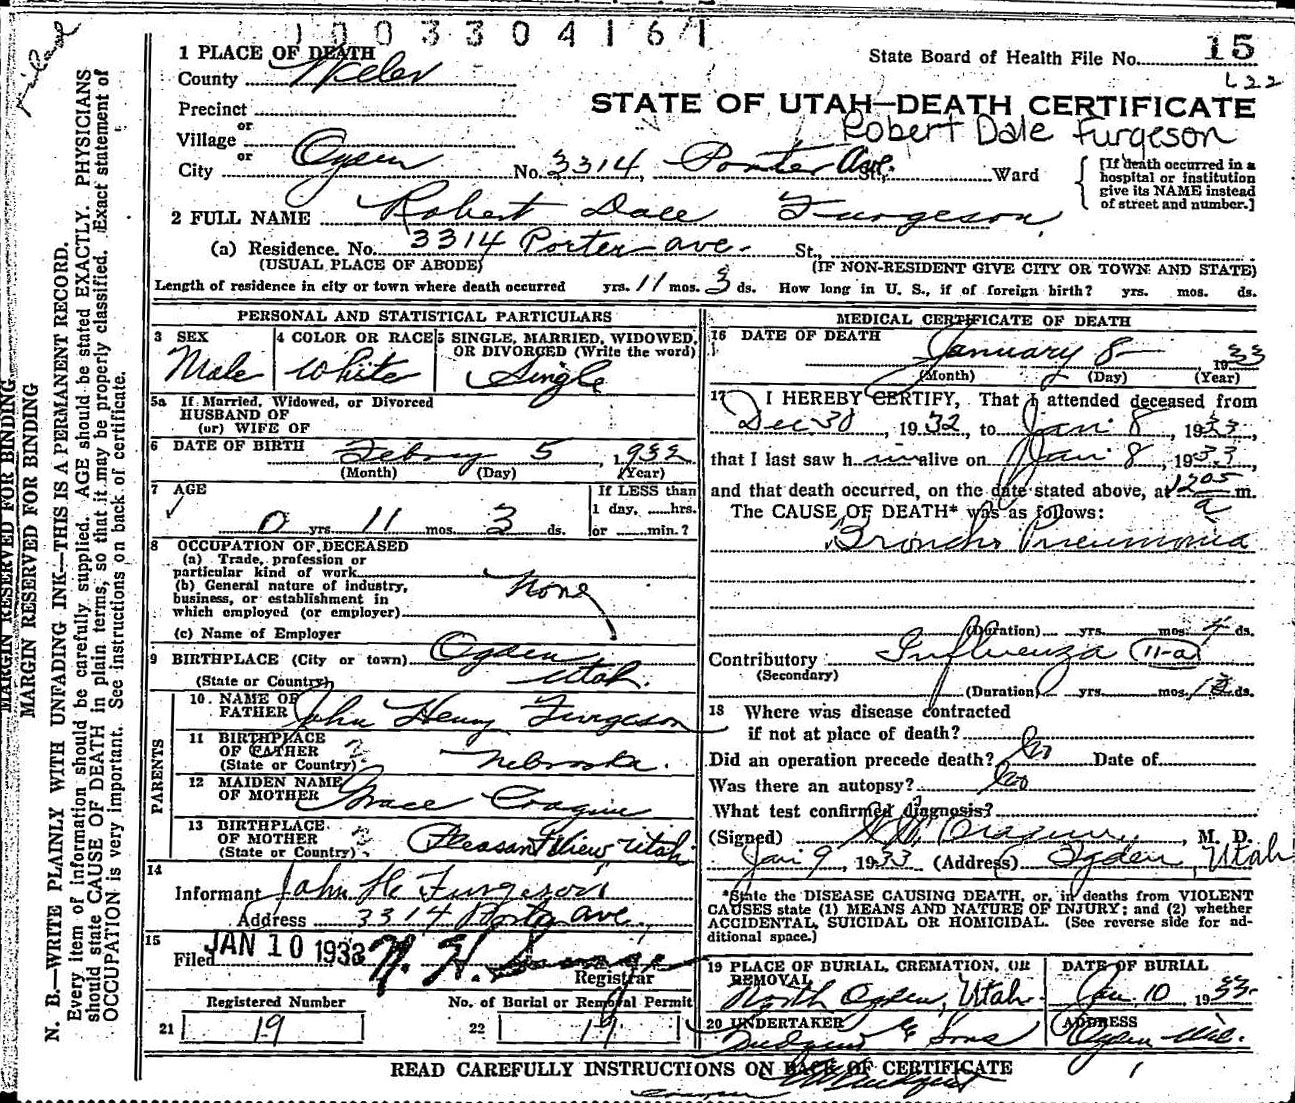 1003304167
State Board of Health File No. 15
L22
1 PLACE OF DEATH
County Weber
STATE OF UTAH—DEATH CERTIFICATE
Robert Dale Furgeson
Precinct
or
Village
or
City Ogden No. 3314, Porter Ave. St, Ward
[If death occurred in a hospital or institution give its NAME instead of street and number.]
2 FULL NAME Robert Dale Furgeson,
(a) Residence. No. 3314 Porter ave. St.,
(USUAL PLACE OF ABODE) (IF NON-RESIDENT GIVE CITY OR TOWN AND STATE)
Length of residence in city or town where death occurred yrs. 11 mos. 3 ds. How long in U. S., if of foreign birth? yrs. mos. ds.
PERSONAL AND STATISTICAL PARTICULARS
3 SEX Male
4 COLOR OR RACE White
5 SINGLE, MARRIED, WIDOWED, OR DIVORCED (Write the word) Single
5a If Married, Widowed, or Divorced
HUSBAND OF
(or) WIFE OF
6 DATE OF BIRTH 5, 1932
(Month) (Day) (Year)
7 AGE
0 yrs. 11 mos. 3 ds.
If LESS than
1 day, ......hrs.
or ......min.?
8 OCCUPATION OF DECEASED
(a) Trade, profession or
particular kind of work
(b) General nature of industry,
business, or establishment in
which employed (or employer)
None
(c) Name of Employer
9 BIRTHPLACE (City or town) Ogden
(State or Country) Utah.
PARENTS
10 NAME OF FATHER John Henry Furgeson
11 BIRTHPLACE OF FATHER
(State or Country) Nebraska.
12 MAIDEN NAME OF MOTHER Grace
13 BIRTHPLACE OF MOTHER
(State or Country) Pleasant View Utah
14
Informant John H. Furgeson
Address 3314 Porter ave.
15
Filed JAN 10 1933
Registrar
Registered Number
21 19
No. of Burial or Removal Permit
22 19
MEDICAL CERTIFICATE OF DEATH
16 DATE OF DEATH
January 8— 1933
(Month) (Day) (Year)
17 I HEREBY CERTIFY, That I attended deceased from
Dec 30, 1932, to Jan 8, 1933,
that I last saw h im alive on Jan 8, 1933,
and that death occurred, on the date stated above, at 1205 a m.
The CAUSE OF DEATH* was as follows:
Broncho Pneumonia
(Duration) yrs. mos. 4 ds.
Contributory Influenza 11-a
(Secondary)
(Duration) yrs. mos. ds.
18 Where was disease contracted
if not at place of death?
Did an operation precede death? No Date of
Was there an autopsy? No
What test confirmed diagnosis?
(Signed) , M. D.
Jan 9, 1933 (Address) Ogden, Utah
*State the DISEASE CAUSING DEATH, or, in deaths from VIOLENT
CAUSES state (1) MEANS AND NATURE OF INJURY; and (2) whether
ACCIDENTAL, SUICIDAL OR HOMICIDAL. (See reverse side for ad-
ditional space.)
19 PLACE OF BURIAL, CREMATION, OR REMOVAL
North Ogden, Utah.
DATE OF BURIAL
Jan. 10, 1933.
20 UNDERTAKER
& Sons
ADDRESS
Ogden
READ CAREFULLY INSTRUCTIONS ON BACK OF CERTIFICATE
MARGIN RESERVED FOR BINDING
MARGIN RESERVED FOR BINDING
N. B.—WRITE PLAINLY WITH UNFADING INK—THIS IS A PERMANENT RECORD.
Every item of information should be carefully supplied. AGE should be stated EXACTLY. PHYSICIANS
should state CAUSE OF DEATH in plain terms, so that it may be properly classified. Exact statement of
OCCUPATION is very important. See instructions on back of certificate.